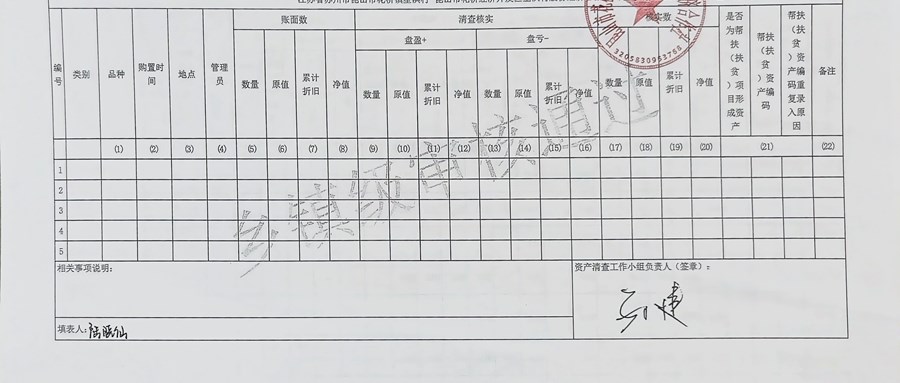 账面数 清查核实 核实数
盘盈+ 盘亏-
编号 类别 品种 购置时间 地点 管理员 数量 原值 累计折旧 净值 数量 原值 累计折旧 净值 数量 原值 累计折旧 净值 数量 原值 累计折旧 净值 是否为帮扶(扶贫)项目形成资产 帮扶(扶贫)资产编码 帮扶(扶贫)资产编码重复录入原因 备注
(1) (2) (3) (4) (5) (6) (7) (8) (9) (10) (11) (12) (13) (14) (15) (16) (17) (18) (19) (20) (21) (22)
1
2
3
4
5
乡镇级审核通过
3205830953788
相关事项说明:
资产清查工作小组负责人(签章):
填表人: